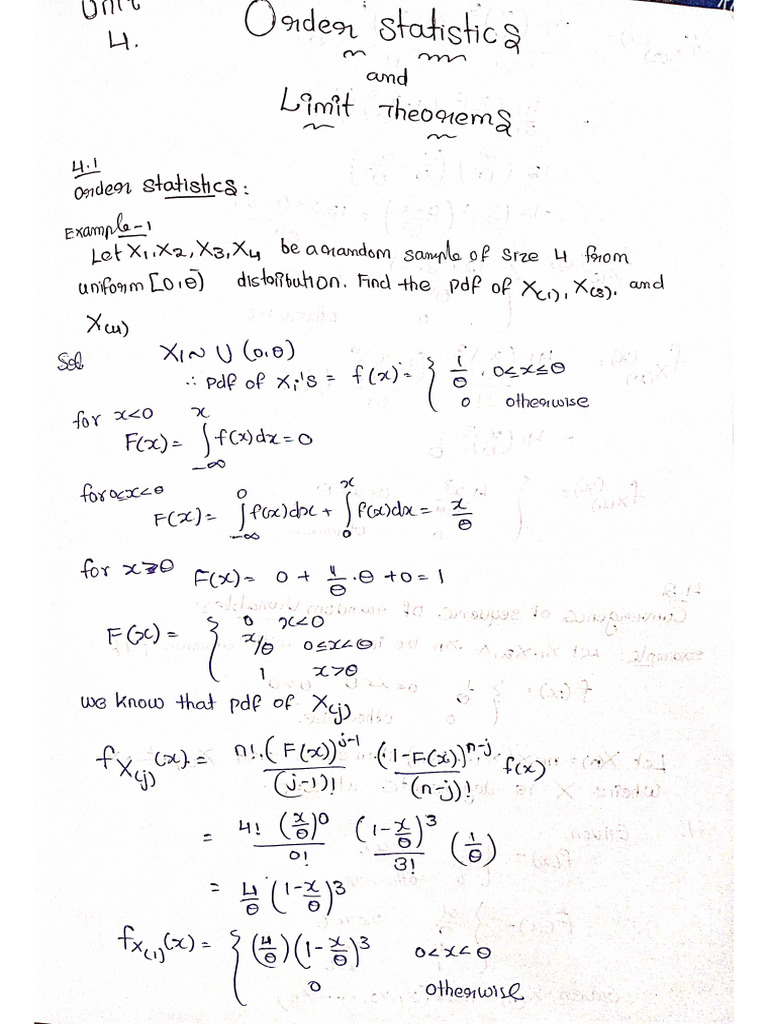 Unit
4.
Order Statistics
and
Limit Theorems
4.1
Order Statistics:
Example-1
Let X₁, X₂, X₃, X₄ be a random sample of size 4 from
uniform [0,θ] distribution. Find the pdf of X₍₁₎, X₍₃₎, and
X₍₄₎
Sol X₁ ~ U (0,θ)
∴ pdf of Xᵢ's = f(x) = { 1/θ , 0≤x≤θ
0 otherwise
for x<0
F(x) = ∫_{-∞}^{x} f(x)dx = 0
for 0≤x<θ
F(x) = ∫_{-∞}^{0} f(x)dx + ∫_{0}^{x} f(x)dx = x/θ
for x≥θ F(x) = 0 + 1/θ · θ + 0 = 1
F(x) = { 0 x<0
x/θ 0≤x<θ
1 x>θ
we know that pdf of X₍ⱼ₎
f_{X(j)}(x) = n! (F(x))^{j-1} / (j-1)! (1-F(x))^{n-j} / (n-j)! f(x)
= 4! (x/θ)^0 / 0! (1-x/θ)^3 / 3! (1/θ)
= 4/θ (1-x/θ)^3
f_{X(1)}(x) = { (4/θ)(1-x/θ)^3 0<x<θ
0 otherwise